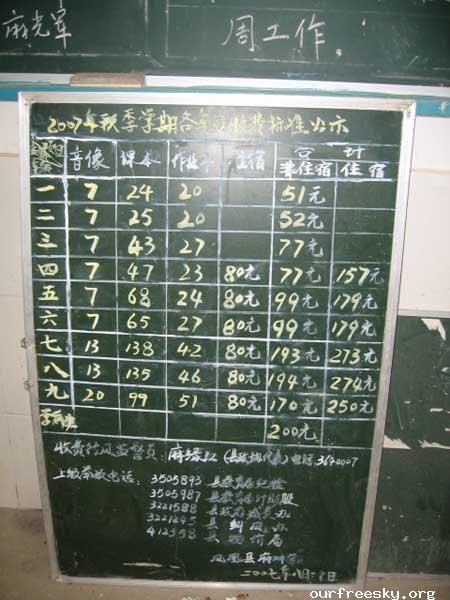 麻光军 周工作.
2007年秋季学期各年级收费标准公示
音像 课本 作业本 住宿 合计
非住宿 住宿
一 7 24 20 51元
二 7 25 20 52元
三 7 43 27 77元
四 7 47 23 80元 77元 157元
五 7 68 24 80元 99元 179元
六 7 65 27 80元 99元 179元
七 13 138 42 80元 193元 273元
八 13 135 46 80元 194元 274元
九 20 99 51 80元 170元 250元
学前班 200元
收费行风监督员: 麻缘红 电话: 3640007
上级举报电话: 3505893 县教育局纪检
3505987 县教育局计财股
3221588 县政府减负办
3221245 县纠风办
412358 县物价局
凤凰县麻冲
二00七年八月 日
ourfreesky.org